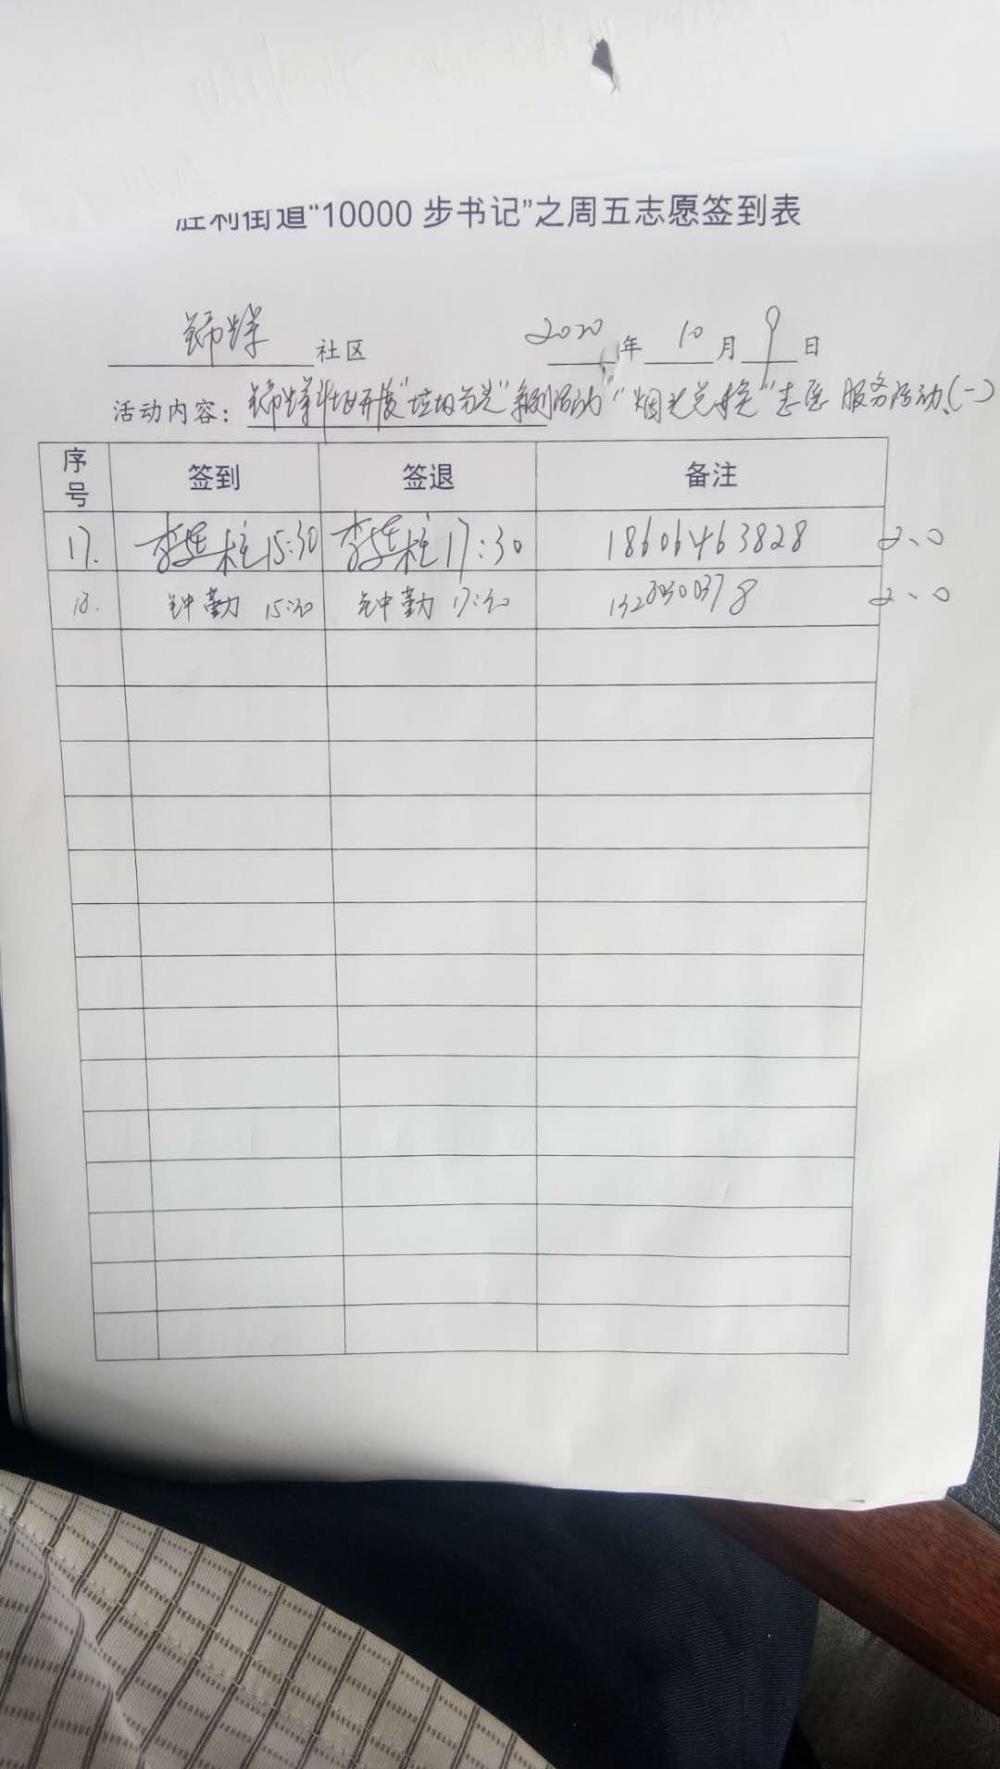 胜利街道“10000 步书记”之周五志愿签到表
锦祥 社区 2020 年 10 月 9 日
活动内容： 锦祥社区开展“垃圾分类”系列活动“烟头兑换”志愿服务活动(一)
序号 签到 签退 备注
17. 李建柱 15:30 李建柱 17:30 18606463828 2.0
18. 钟勤 15:30 钟勤 17:30 2.0